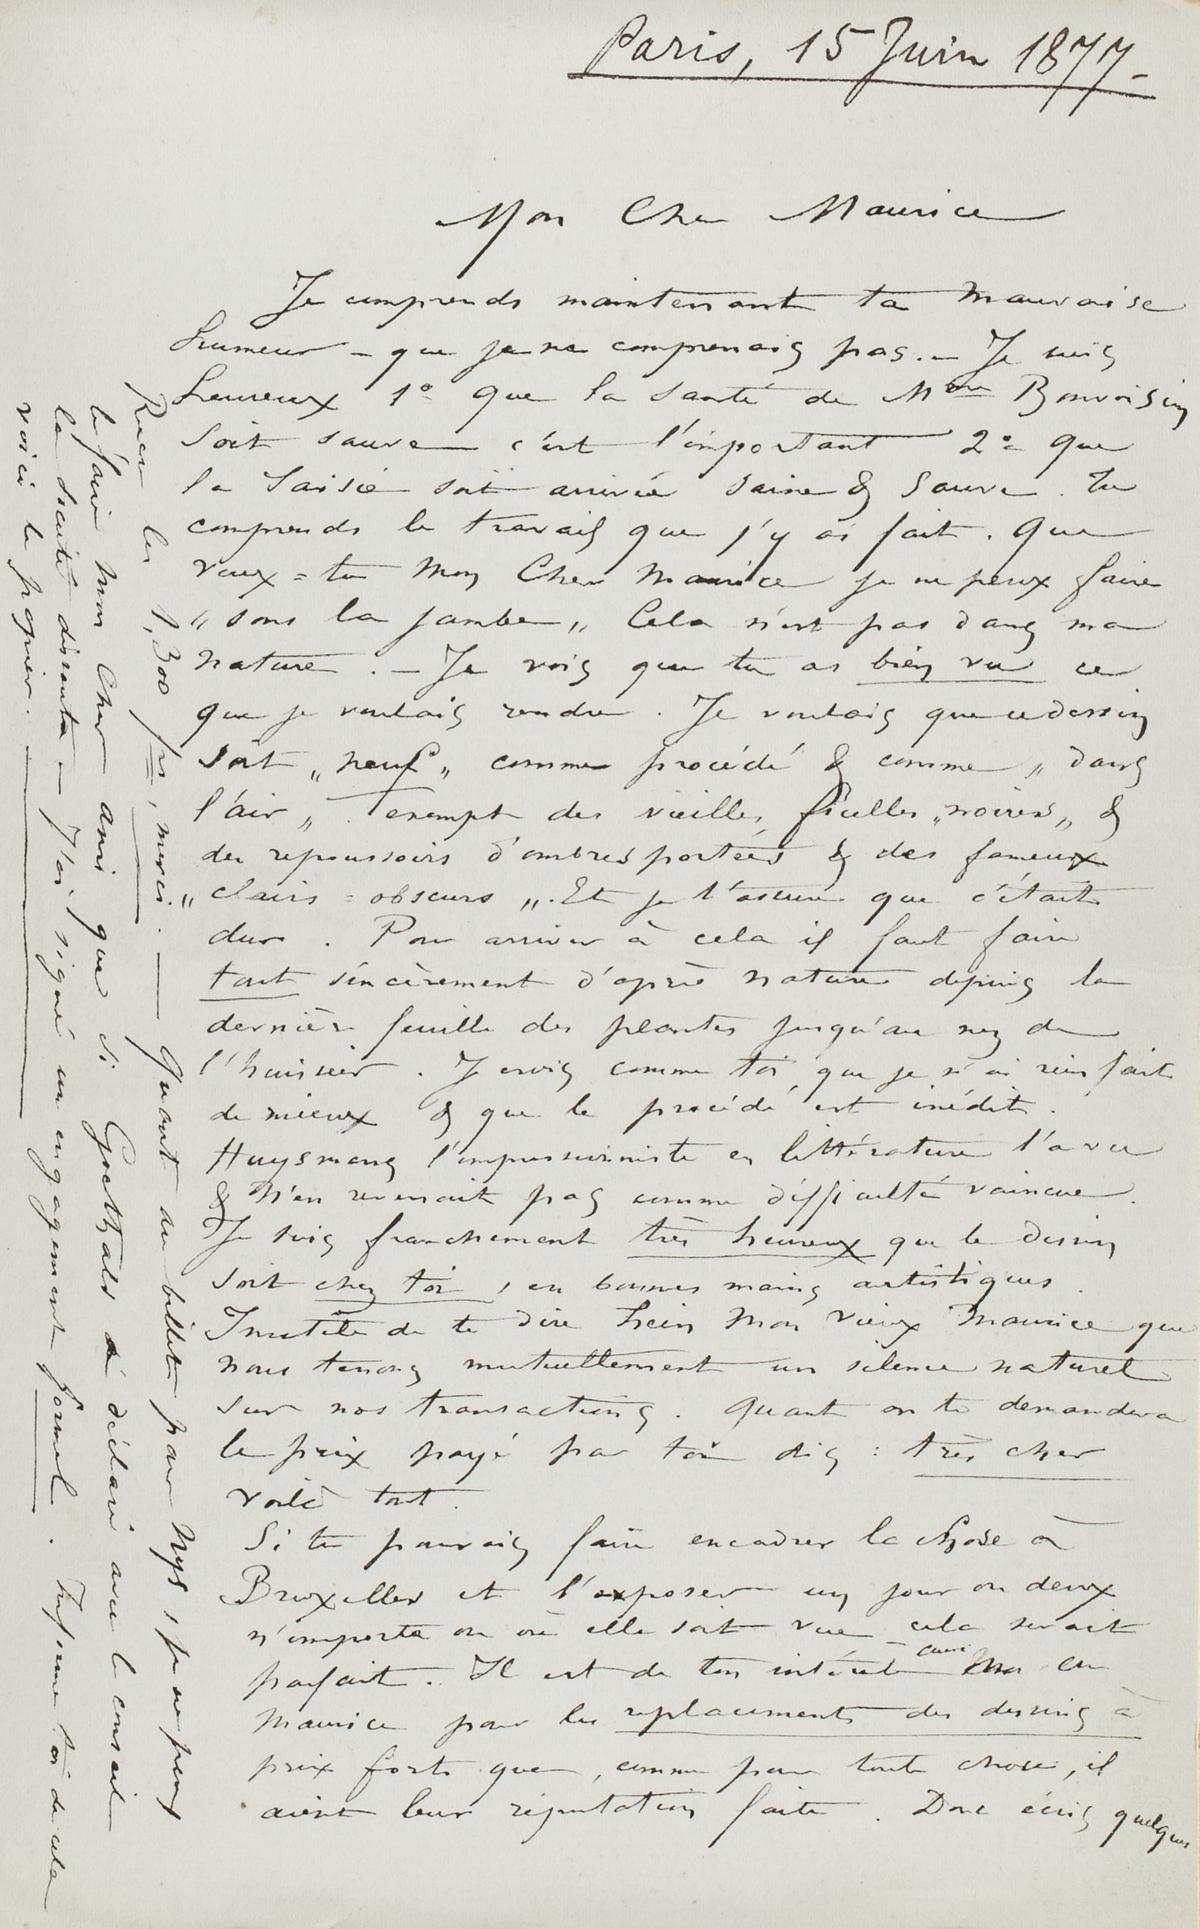 Paris, 15 Juin 1877.
Mon Cher Maurice
Je comprends maintenant ta mauvaise
humeur – que je ne comprenais pas. – Je suis
heureux 1° que la santé de Mme Bonvoisin
soit sauve c'est l'important 2° que
la Saisie soit arrivée saine & sauve. Tu
comprends le travail que j'y ai fait. Que
veux-tu mon Cher Maurice je ne peux faire
„ sous la jambe „ Cela n'est pas dans ma
nature. – Je vois que tu as bien vu ce
que je voulais rendre. Je voulais que ce dessin
soit „ neuf „ comme procédé & comme „ dans
l'air „ exempt des vieilles ficelles „noires„ &
des repoussoirs d'ombres portées & des fameux
„ clairs = obscurs „. Et je t'assure que c'était
dur. Pour arriver à cela il faut faire
tout sincèrement d'après nature depuis la
dernière feuille des plantes jusqu'au nez de
l'huissier. J crois comme toi, que je n'ai rien fait
de mieux & que le procédé est inédit.
Huysmans l'impressionniste en littérature l'a vu
& n'en revenait pas comme difficulté vaincue.
Je suis franchement très heureux que le dessin
soit chez toi, en bonnes mains artistiques.
Inutile de te dire hein mon vieux Maurice que
nous tenons mutuellement un silence naturel
sur nos transactions. Quant on te demandera
le prix payé par toi dis : très cher
voilà tout.
Si tu pouvais faire encadrer la chose à
Bruxelles et l'exposer un jour ou deux
n'importe ou où elle soit vue cela serait
parfait. Il est de ton intérêt aussi mon
Maurice pour les replacements des dessins à
prix forts que, comme pour toute chose, il
aient leur réputation faite. Donc écris quelques
Reçu les 1,300 frs, merci. – Quant au billet pour Nys, je ne peux
le faire mon Cher ami que si Goethals a déclaré avec le conseil
la société dissoute – J'ai signé un engagement formel. Informe toi de cela
voici le papier.